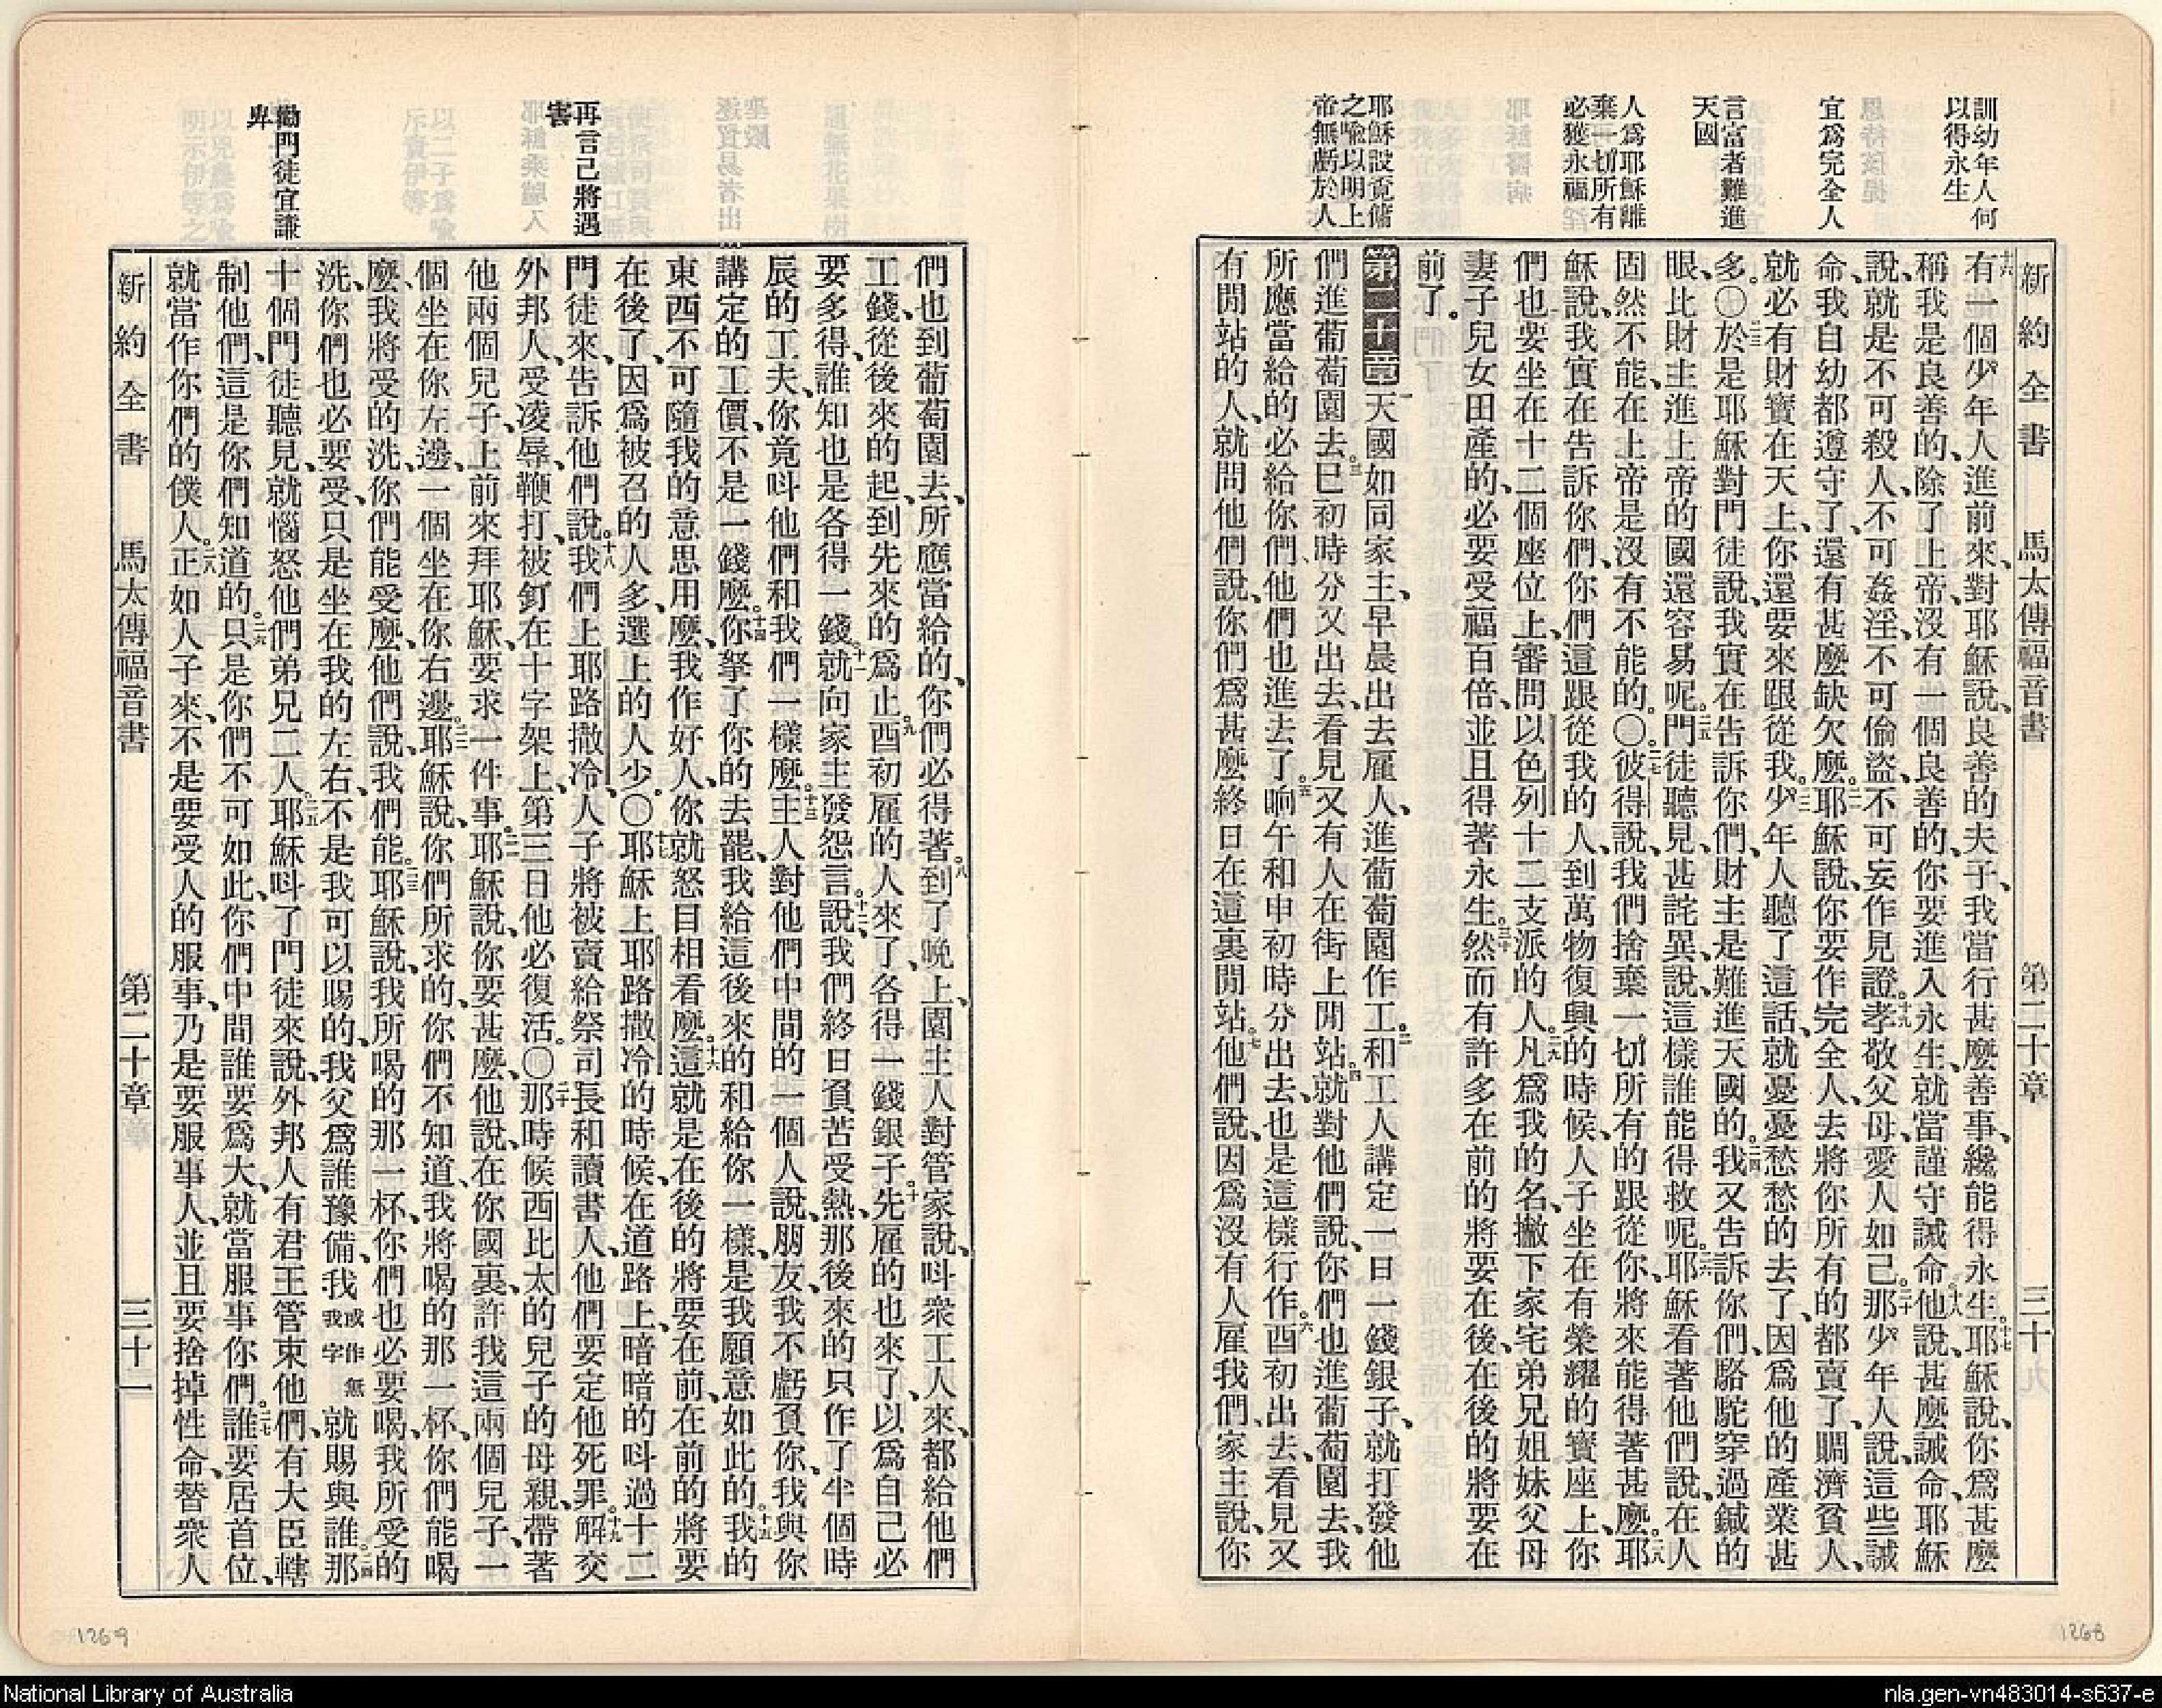 訓幼年人何
以得永生
宜爲完全人
言富者難進
天國
人爲耶穌離
棄一切所有
必獲永福
耶穌設覓傭
之喻以明上
帝無虧於人
新約全書 馬太傳福音書 第二十章 三十
十六有一個少年人進前來、對耶穌說、良善的夫子、我當行甚麼善事、纔能得永生。十七耶穌說、你爲甚麼
稱我是良善的、除了上帝、沒有一個良善的、你要進入永生、就當謹守誡命。十八他說、甚麼誡命、耶穌
說、就是不可殺人、不可姦淫、不可偷盜、不可妄作見證。十九孝敬父母、愛人如己。二十那少年人說、這些誡
命、我自幼都遵守了、還有甚麼缺欠麼。二一耶穌說、你要作完全人、去將你所有的都賣了、賙濟貧人、
就必有財寶在天上、你還要來跟從我。二二少年人聽了這話、就憂憂愁愁的去了、因爲他的產業甚
多。〇二三於是耶穌對門徒說、我實在告訴你們、財主是難進天國的。二四我又告訴你們、駱駝穿過鍼的
眼、比財主進上帝的國還容易呢。二五門徒聽見、甚詫異、說、這樣誰能得救呢。二六耶穌看著他們說、在人
固然不能、在上帝是沒有不能的。〇二七彼得說、我們捨棄一切所有的跟從你、將來能得著甚麼。二八耶
穌說、我實在告訴你們、你們這跟從我的人、到萬物復興的時候、人子坐在有榮耀的寶座上、你
們也要坐在十二個座位上、審問以色列十二支派的人。二九凡爲我的名、撇下家宅弟兄姐妹父母
妻子兒女田產的、必要受福百倍、並且得著永生。三十然而有許多在前的將要在後、在後的將要在
前了。
第二十章 一天國如同家主、早晨出去雇人、進葡萄園作工。二和工人講定一日一錢銀子、就打發他
們進葡萄園去。三巳初時分又出去、看見又有人在街上閒站。四就對他們說、你們也進葡萄園去、我
所應當給的、必給你們、他們也進去了。五晌午和申初時分出去、也是這樣行作。六酉初出去、看見又
有閒站的人、就問他們說、你們爲甚麼終日在這裏閒站。七他們說、因爲沒有人雇我們、家主說、你
1268
再言己將遇
害
勸門徒宜謙
卑
們也到葡萄園去、所應當給的、你們必得著。八到了晚上、園主人對管家說、呌衆工人來、都給他們
工錢、從後來的起、到先來的爲止。九酉初雇的人來了、各得一錢銀子。十先雇的也來了、以爲自己必
要多得、誰知也是各得一錢。十一就向家主發怨言。十二說、我們終日負苦受熱、那後來的只作了半個時
辰的工夫、你竟呌他們和我們一樣麼。十三主人對他們中間的一個人說、朋友、我不虧負你、我與你
講定的工價、不是一錢麼。十四你拏了你的去罷、我給這後來的和給你一樣、是我願意如此的。十五我的
東西、不可隨我的意思用麼、我作好人、你就怒目相看麼。十六這就是在後的將要在前、在前的將要
在後了、因爲被召的人多、選上的人少。〇十七耶穌上耶路撒冷的時候、在道路上、暗暗的呌過十二
門徒來、告訴他們說。十八我們上耶路撒冷、人子將被賣給祭司長和讀書人、他們要定他死罪。十九解交
外邦人、受凌辱、鞭打、被釘在十字架上、第三日他必復活。〇二十那時候西比太的兒子的母親、帶著
他兩個兒子、上前來拜耶穌、要求一件事。二一耶穌說、你要甚麼、他說、在你國裏、許我這兩個兒子、一
個坐在你左邊、一個坐在你右邊。二二耶穌說、你們所求的、你們不知道、我將喝的那一杯、你們能喝
麼、我將受的洗、你們能受麼、他們說、我們能。二三耶穌說、我所喝的那一杯、你們也必要喝、我所受的
洗、你們也必要受、只是坐在我的左右、不是我可以賜的、我父爲誰豫備、我或作無我字就賜與誰。二四那
十個門徒聽見、就惱怒他們弟兄二人。二五耶穌呌了門徒來、說、外邦人有君王管束他們、有大臣轄
制他們、這是你們知道的。二六只是你們不可如此、你們中間誰要爲大、就當服事你們。二七誰要居首位、
就當作你們的僕人。二八正如人子來、不是要受人的服事、乃是要服事人、並且要捨掉性命、替衆人
新約全書 馬太傳福音書 第二十章 三十一
1269
National Library of Australia
nla.gen-vn483014-s637-e